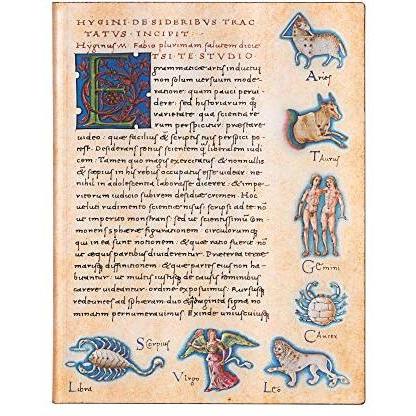 HYGINI · DE SIDERIBVS TRAC
TATVS · INCIPIT ·
Hyginus M. Fabio plurimam salutem dicit
ETSI TE STUDIO
grammaticae artis inductum
non solum versuum mode-
ratione quam pauci perui
dere: sed historiarum q
varietate qua scientia re
rum perspicitur praestare
video · quae facilius & scriptis tuis perspici po-
test. Desiderans potius scientem quam liberalem iudi
cem. Tamen quo magis exercitatus & nonnullis
& saepius in his rebus occupatus esse videar: ne
nihil in adolescentia laborasse dicerer: & imperi-
torum iudicio subirem desidiae crimen. Hoc
veluti rudimento scientiae nisus: scripsi ad te no
ut imperito monstrans: sed ut scientissimum com
monens sphaerae figurationem circulorumq
qui in ea sunt notionem · & quae ratio fuerit no
ut aequis partibus dividerentur. Praeterea terrae
marisq diffinitionem & quae partes eius non ha-
bitantur: ut multis iustisq de causis hominibus
carere videantur ordine exposuimus. Rursusq
redeuntes ad sphaeram duo & quadraginta signa no
minatim pernumeravimus. Exinde uniuscuiusq
Aries
Taurus
Gemini
Cancer
Scorpius
Libra
Virgo
Leo